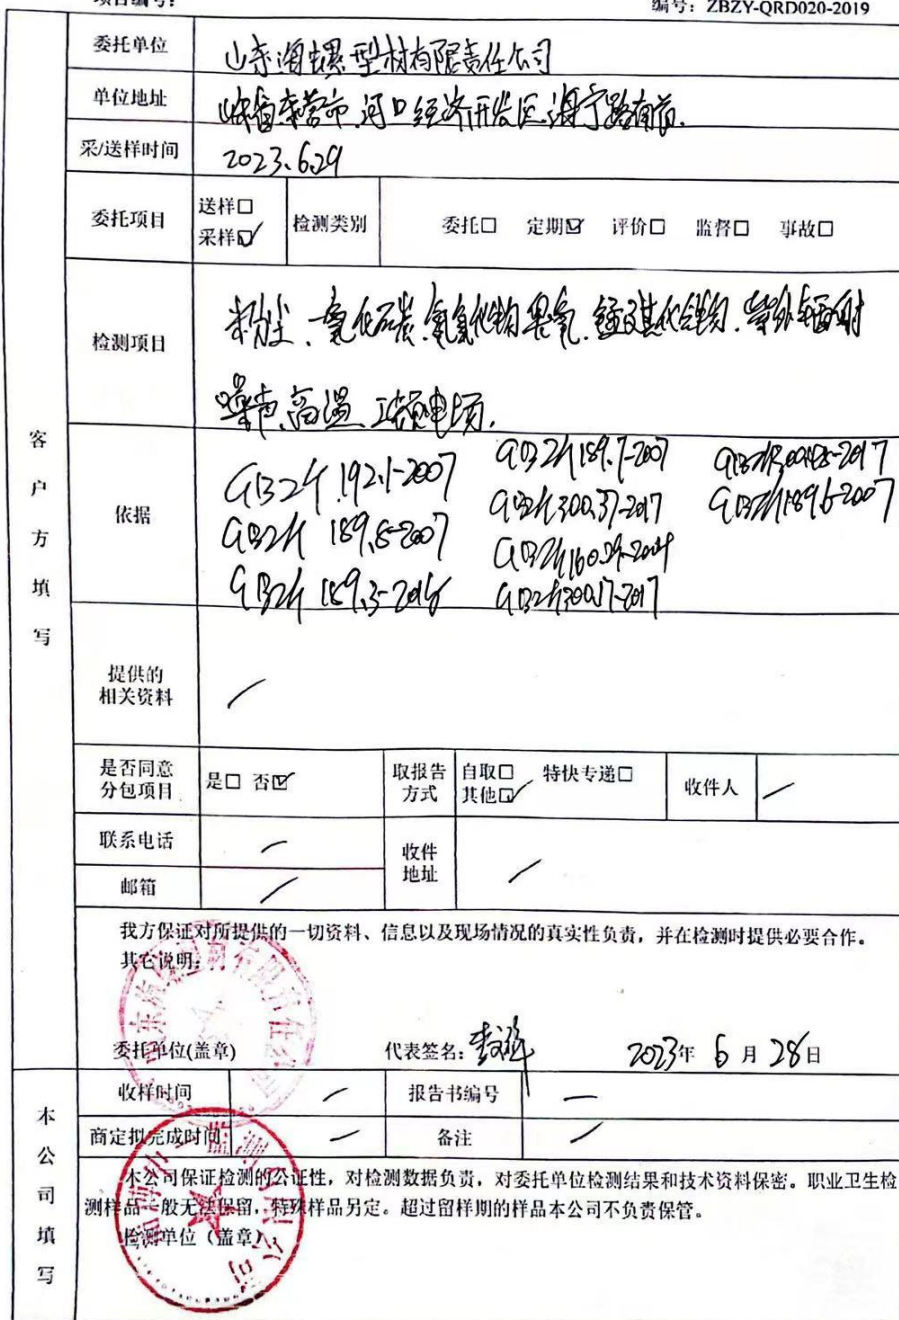 编号：ZBZY-QRD020-2019
委托单位
山东海螺型材有限责任公司
单位地址
山东省东营市河口经济开发区海宁路南首.
采/送样时间
2023.6.29
委托项目
送样□
采样☑
检测类别
委托□ 定期☑ 评价□ 监督□ 事故□
检测项目
粉尘、一氧化碳、氮氧化物、臭氧、锰及其化合物、紫外辐射
噪声、高温、工频电场.
客户方填写
依据
GBZ/T 192.1-2007
GBZ/T 189.7-2007
GBZ/T 189.8-2007
GBZ/T 300.37-2017
GBZ/T 189.6-2007
GBZ/T 189.3-2018
GBZ/T 300.17-2017
提供的
相关资料
是否同意
分包项目
是□ 否☑
取报告
方式
自取□ 特快专递□
其他☑
收件人
联系电话
收件
地址
邮箱
我方保证对所提供的一切资料、信息以及现场情况的真实性负责，并在检测时提供必要合作。
其它说明：
委托单位(盖章)
代表签名：
2023年 6 月 28日
本公司填写
收样时间
报告书编号
商定拟完成时间
备注
本公司保证检测的公证性，对检测数据负责，对委托单位检测结果和技术资料保密。职业卫生检
测样品一般无法保留，特殊样品另定。超过留样期的样品本公司不负责保管。
检测单位（盖章）